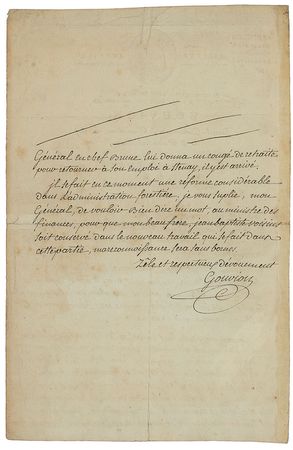 Général en chef Brune lui donna un congé de retraite
pour retourner à son emploi à Stenay, il y est arrivé.
il se fait en ce moment une réforme considérable
dans l'administration forestière, je vous suplie, mon
Général, de vouloir bien dire un mot, au ministre des
finances, pour que mon beau frère, jean baptiste
soit conservé dans le nouveau travail qui se fait dans
cette partie, ma reconnaissance sera sans bornes
Zèle et respectueux dévouement
Gouvion